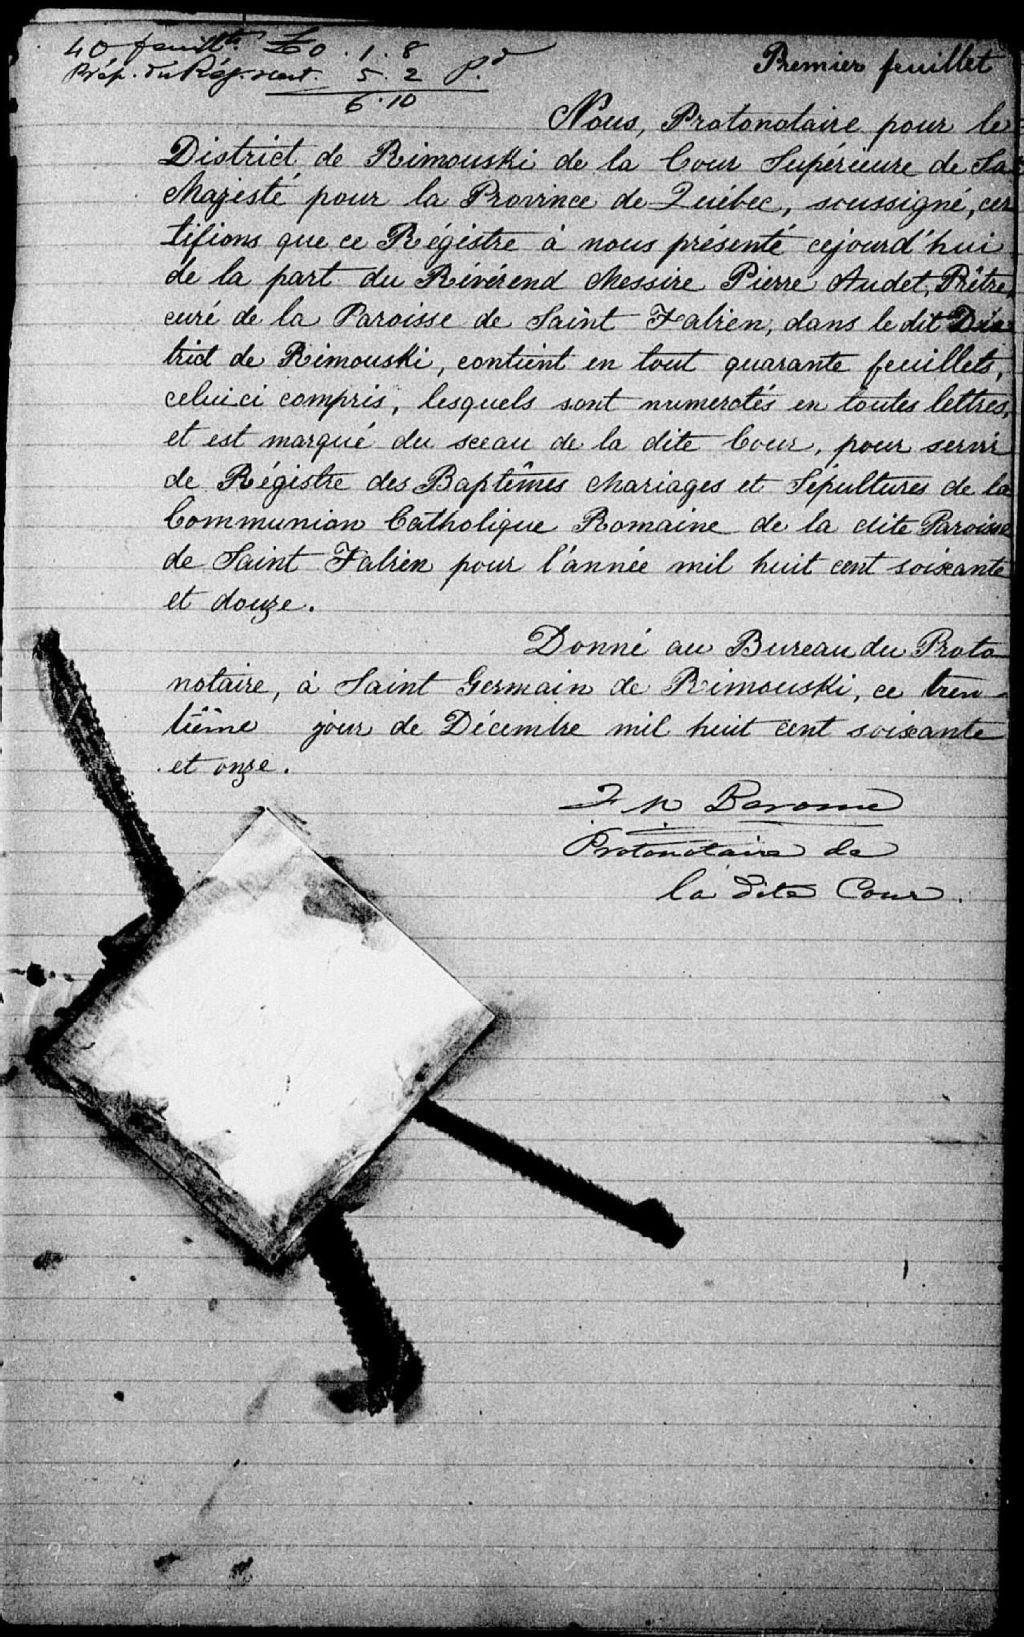 40 feuillts £0 . 1 . 8
Prép. du Rég. 5 . 2 P.d
6 . 10
Premier feuillet
Nous, Protonotaire pour le
District de Rimouski de la Cour Supérieure de Sa
Majesté pour la Province de Québec, soussigné, cer
tifions que ce Régistre à nous présenté cejourd'hui
de la part du Révérend Messire Pierre Audet, Prêtre,
curé de la Paroisse de Saint Fabien, dans le dit Dis
trict de Rimouski, contient en tout quarante feuillets,
celui ci compris, lesquels sont numerotés en toutes lettres,
et est marqué du sceau de la dite Cour, pour servir
de Régistre des Baptêmes Mariages et Sépultures de la
Communion Catholique Romaine de la dite Paroisse
de Saint Fabien pour l'année mil huit cent soixante
et douze.
Donné au Bureau du Proto
notaire, à Saint Germain de Rimouski, ce tren-
tième jour de Décembre mil huit cent soixante
et onze.
Protonotaire de
la dite Cour.